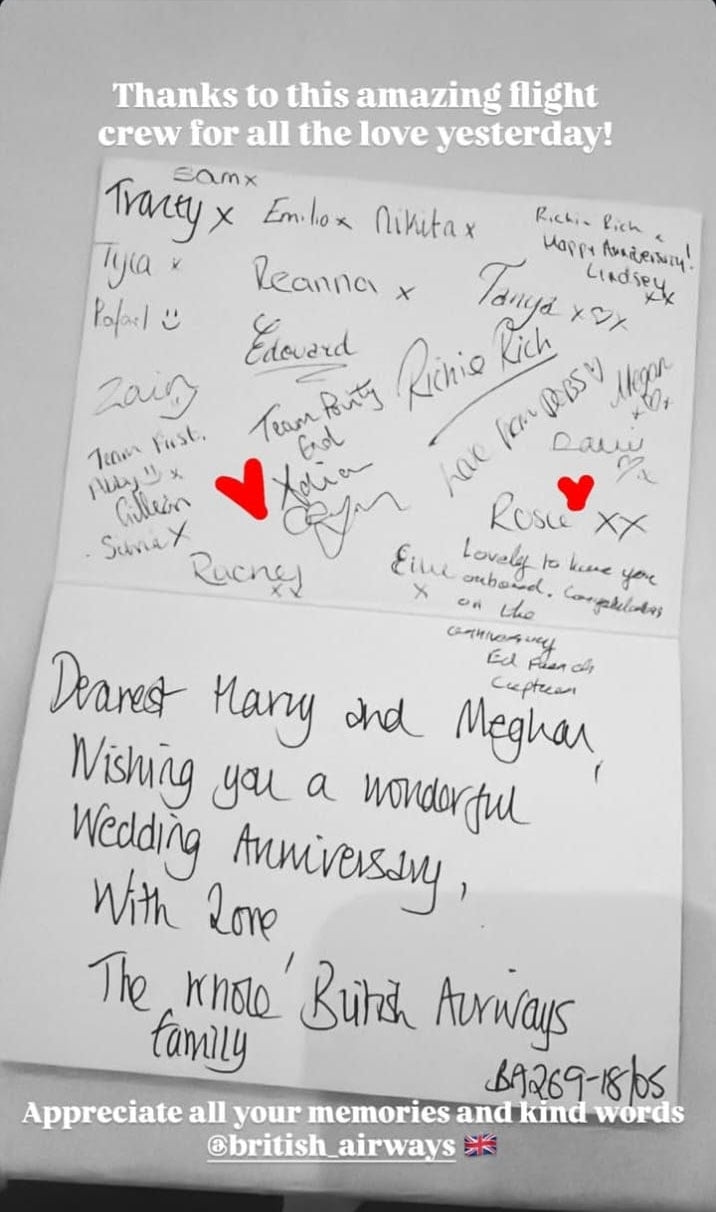 Thanks to this amazing flight
crew for all the love yesterday!
Samx
Tracey x Emilio x Nikita x
Richie Rich
Happy Anniversary!
Lindsey
xx
Tyla x
Reanna x
Tanya x♡x
Rafael
Edouard
Richie Rich
Zain
Team Party
End
Love from DEBS
Megan
x♡x
Team First.
Abby x
Gillean
x
Rosie xx
x
Lovely to have you
onboard. Congratulations
on the
anniversary
Ed French
Captain
Dearest Harry and Meghan,
Wishing you a wonderful
Wedding Anniversary,
With Love
The whole British Airways
family
BA269-18/05
Appreciate all your memories and kind words
@british_airways 🇬🇧